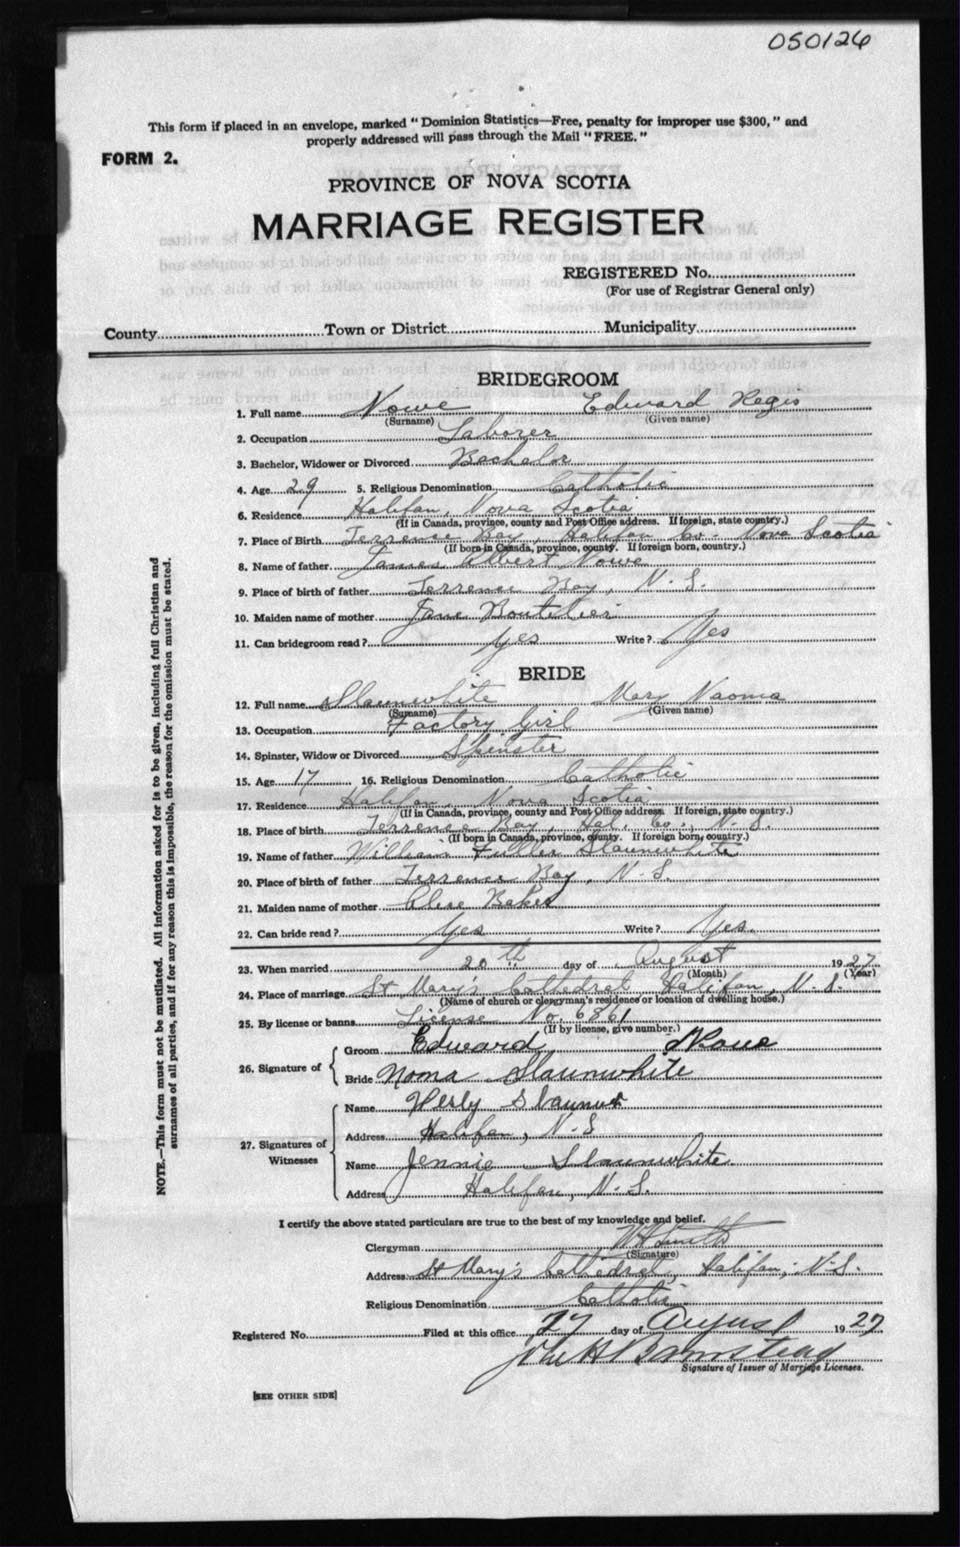 050126
This form if placed in an envelope, marked "Dominion Statistics—Free, penalty for improper use $300," and
properly addressed will pass through the Mail "FREE."
FORM 2.
PROVINCE OF NOVA SCOTIA
MARRIAGE REGISTER
REGISTERED No.
(For use of Registrar General only)
County Town or District Municipality
BRIDEGROOM
1. Full name Nowe Edward Regis
(Surname) (Given name)
2. Occupation Laborer
3. Bachelor, Widower or Divorced Bachelor
4. Age 29 5. Religious Denomination Catholic
6. Residence Halifax, Nova Scotia
(If in Canada, province, county and Post Office address. If foreign, state country.)
7. Place of Birth Terrence Bay, Halifax Co. Nova Scotia
(If born in Canada, province, county. If foreign born, country.)
8. Name of father James Albert Nowe
9. Place of birth of father Terrence Bay, N.S.
10. Maiden name of mother Jane Boutelier
11. Can bridegroom read? Yes Write? Yes
BRIDE
12. Full name Slaunwhite Mary Naoma
(Surname) (Given name)
13. Occupation Factory Girl
14. Spinster, Widow or Divorced Spinster
15. Age 17 16. Religious Denomination Catholic
17. Residence Halifax, Nova Scotia
(If in Canada, province, county and Post Office address. If foreign, state country.)
18. Place of birth Terrence Bay, Hal. Co., N.S.
(If born in Canada, province, county. If foreign born, country.)
19. Name of father William Fuller Slaunwhite
20. Place of birth of father Terrence Bay, N.S.
21. Maiden name of mother Baker
22. Can bride read? Yes Write? Yes.
23. When married 20th day of August 1927
(Month) (Year)
24. Place of marriage St Mary's Cathedral Halifax, N.S.
(Name of church or clergyman's residence or location of dwelling house.)
25. By license or banns License No. 6861
(If by license, give number.)
26. Signature of Groom Edward Nowe
Bride Noma Slaunwhite
27. Signatures of Witnesses Name
Address Halifax, N.S
Name Jennie Slaunwhite
Address Halifax, N.S.
I certify the above stated particulars are true to the best of my knowledge and belief.
Clergyman Smith
(Signature)
Address St Mary's Cathedral, Halifax, N.S.
Religious Denomination Catholic
Registered No. Filed at this office 27 day of August 1927
Signature of Issuer of Marriage Licenses.
[SEE OTHER SIDE]
NOTE.—This form must not be mutilated. All information asked for is to be given, including full Christian and
surnames of all parties, and if for any reason this is impossible, the reason for the omission must be stated.